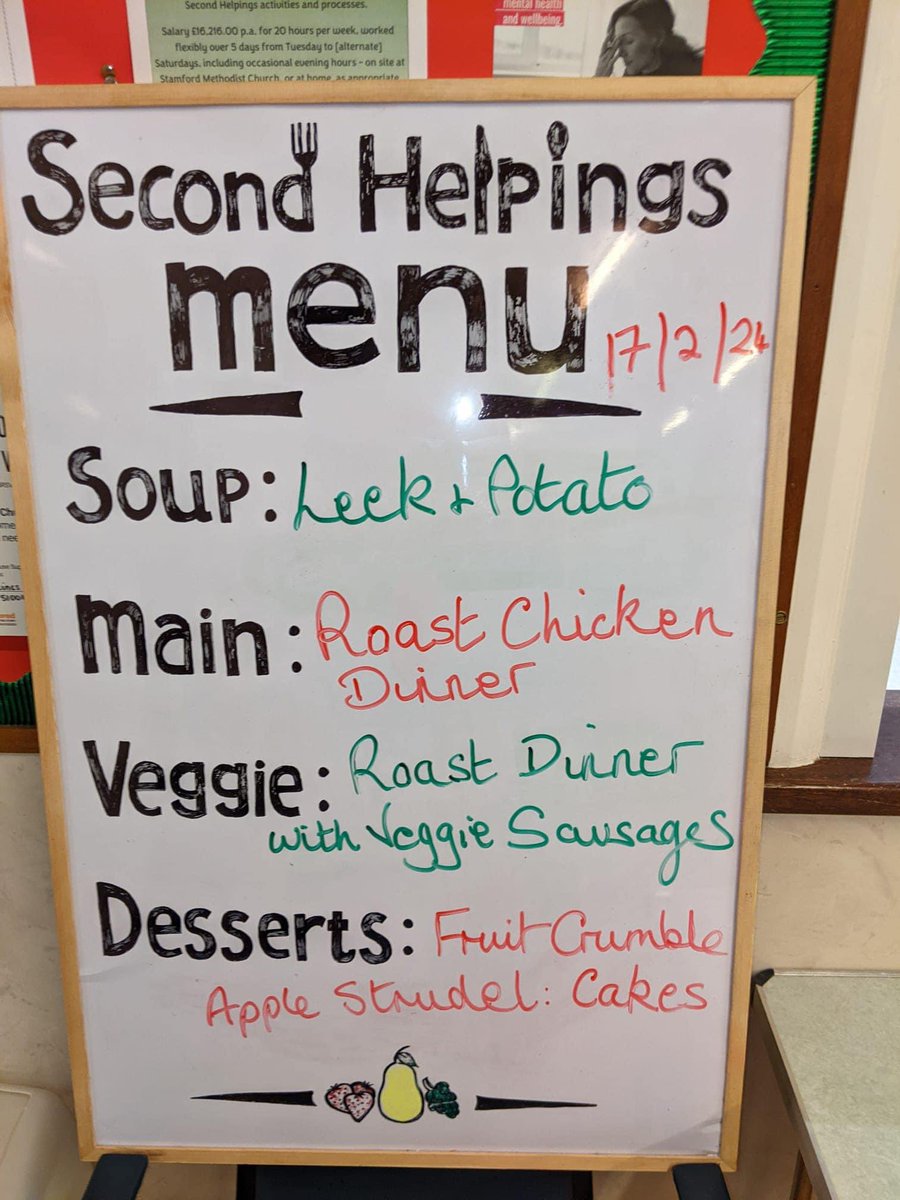 Second Helpings activities and processes.
Salary £16,216.00 p.a. for 20 hours per week, worked
flexibly over 5 days from Tuesday to [alternate]
Saturdays, including occasional evening hours – on site at
Stamford Methodist Church, or at home, as appropriate
mental health
and wellbeing.
Second Helpings
menu
17/2/24
Soup: Leek & Potato
Main: Roast Chicken
Dinner
Veggie: Roast Dinner
with Veggie Sausages
Desserts: Fruit Crumble
Apple Strudel: Cakes